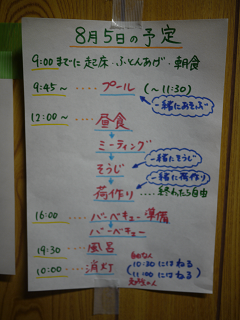 8月5日の予定
9:00までに起床・ふとんあげ・朝食
9:45~‥‥プール (~11:30)
一緒にあそぶ
12:00~‥‥昼食
ミーティング
そうじ
一緒にそうじ
荷作り
一緒に荷作り
終わったら自由
16:00‥‥バーベキュー準備
バーベキュー
19:30‥‥風呂
10:00‥‥消灯
10:30にはねる
11:00にはねる